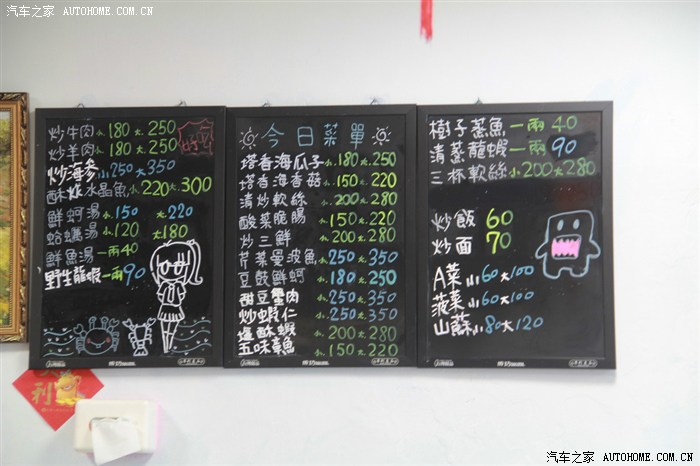 汽车之家 AUTOHOME.COM.CN
炒牛肉 小180 大250
炒羊肉 小180 大250
炒海參 小250 大350
酥炸水晶魚 小220 大300
鮮蚵湯 小150 大220
蛤蠣湯 小120 大180
鮮魚湯 一兩40
野生龍蝦 一兩90
今日菜單
塔香海瓜子 小180 大250
塔香海香菇 小150 大220
清炒軟絲 小200 大280
酸菜脆腸 小150 大220
炒三鮮 小200 大280
芹菜曼波魚 小250 大350
豆鼓鮮蚵 小180 大250
甜豆蟹肉 小250 大350
炒蝦仁 小250 大350
酥蝦 小200 大280
五味 小150 大220
樹子蒸魚 一兩40
清蒸龍蝦 一兩90
三杯軟絲 小200 大280
炒飯 60
炒面 70
A菜 小60 大100
菠菜 小60 大100
山蘇 小80 大120
利
汽车之家 AUTOHOME.COM.CN